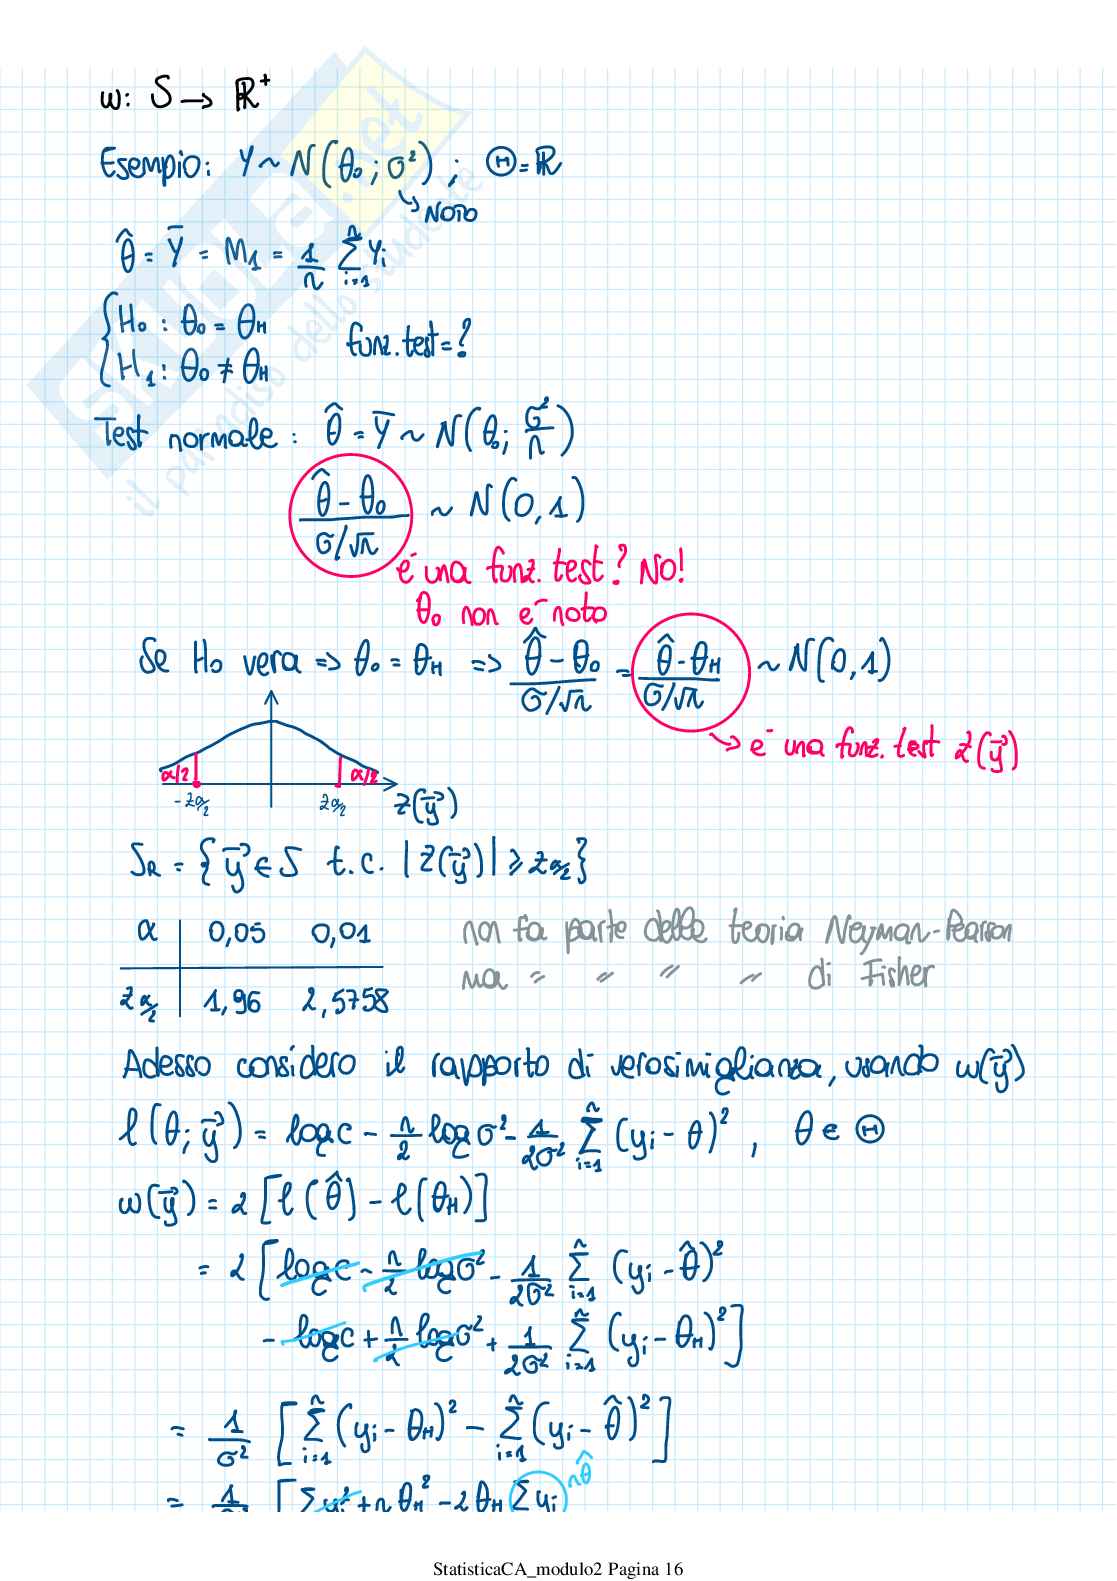 w: S → ℝ⁺
Esempio: Y ~ N(θ₀; σ²) ; Θ = ℝ
↳ NOTO
θ̂ = Ȳ = M₁ = 1/n Σᵢ₌₁ⁿ Yᵢ
{ H₀ : θ₀ = θ_H
H₁ : θ₀ ≠ θ_H funz. test = ?
Test normale : θ̂ = Ȳ ~ N(θ₀; σ²/n)
(θ̂ - θ₀)/(σ/√n) ~ N(0,1)
è una funz. test? NO!
θ₀ non è noto
Se H₀ vera => θ₀ = θ_H => (θ̂ - θ₀)/(σ/√n) = (θ̂ - θ_H)/(σ/√n) ~ N(0,1)
→ è una funz. test z(y⃗)
α/2 α/2
-z_α/2 z_α/2 z(y⃗)
S_R = { y⃗ ∈ S t.c. |z(y⃗)| ≥ z_α/2 }
α | 0,05 0,01
z_α/2 | 1,96 2,5758
non fa parte della teoria Neyman-Pearson
ma " " " di Fisher
Adesso considero il rapporto di verosimiglianza, usando w(y⃗)
l(θ; y⃗) = log c - n/2 log σ² - 1/2σ² Σᵢ₌₁ⁿ (yᵢ - θ)² , θ ∈ Θ
w(y⃗) = 2 [l(θ̂) - l(θ_H)]
= 2 [log c - n/2 log σ² - 1/2σ² Σᵢ₌₁ⁿ (yᵢ - θ̂)²
- log c + n/2 log σ² + 1/2σ² Σᵢ₌₁ⁿ (yᵢ - θ_H)²]
= 1/σ² [Σᵢ₌₁ⁿ (yᵢ - θ_H)² - Σᵢ₌₁ⁿ (yᵢ - θ̂)²]
= 1/σ² [Σ yᵢ² + n θ_H² - 2 θ_H Σ yᵢ nθ̂
SKUOLA.net
il paradiso dello studente
StatisticaCA_modulo2 Pagina 16